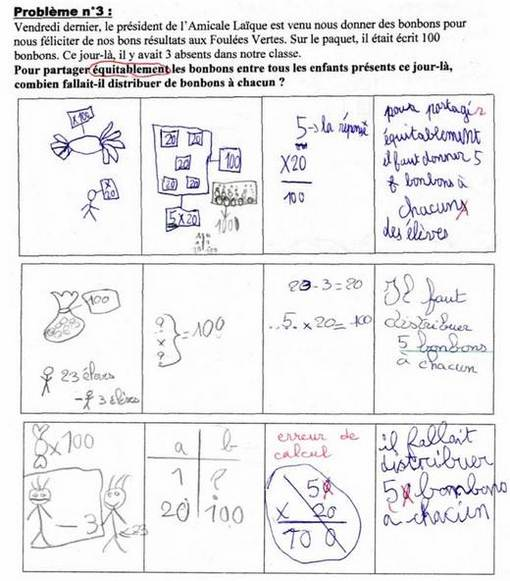 Problème n°3 :
Vendredi dernier, le président de l'Amicale Laïque est venu nous donner des bonbons pour
nous féliciter de nos bons résultats aux Foulées Vertes. Sur le paquet, il était écrit 100
bonbons. Ce jour-là, il y avait 3 absents dans notre classe.
Pour partager équitablement les bonbons entre tous les enfants présents ce jour-là,
combien fallait-il distribuer de bonbons à chacun ?
x 100
x 20
20 20
20
20 20
100
5 x 20
100
5 → la réponse
x20
100
pour partager
équitablement
il faut donner 5
bonbons à
chacun
des élèves
100
23 élèves
- 3 élèves
?
x
?
= 100
23 - 3 = 20
5 x 20 = 100
Il faut
distribuer
5 bonbons
a chacun
x 100
- 3
23
a b
1 ?
20 100
erreur de
calcul
5
x 20
100
il fallait
distribuer
5 bonbons
à chacun